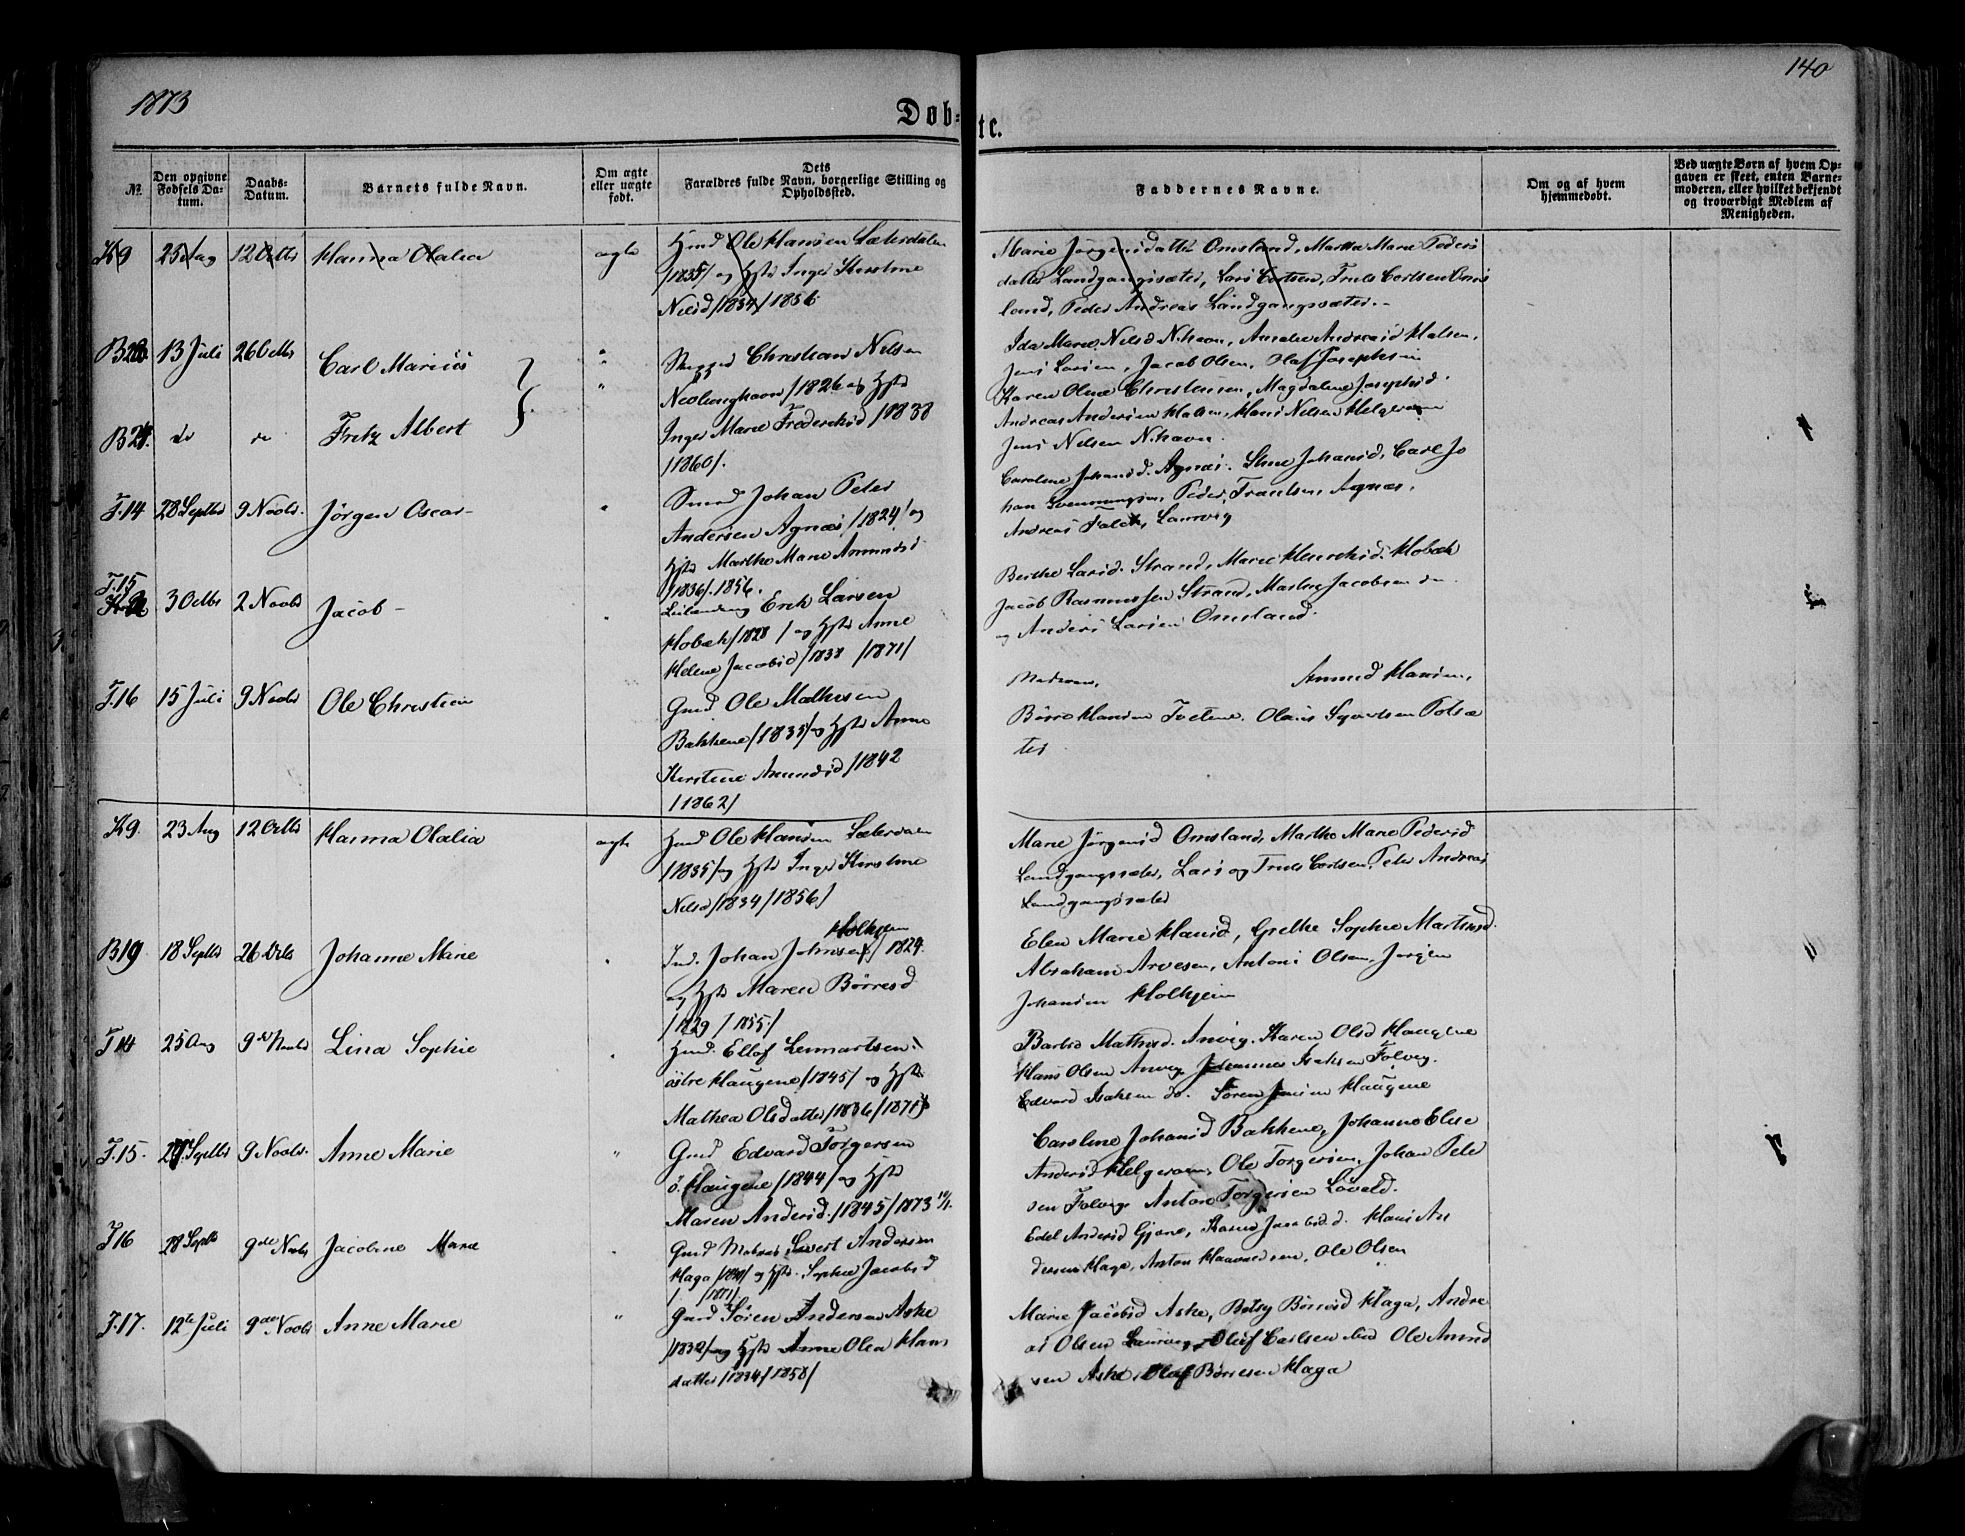 1873
140
Døb-
te.
№
Den opgivne Fødsels Datum.
Daabs-Datum.
Barnets fulde Navn.
Om ægte eller uægte født.
Dets Forældres fulde Navn, borgerlige Stilling og Opholdssted.
Faddernes Navne.
Om og af hvem hjemmedøbt.
Ved uægte Børn af hvem Opgaven er skeet, enten Barnemoderen, eller hvilket bekjendt og troværdigt Medlem af Menigheden.
K9 25 Aug 12 Octbr Hanna Olalia ægte
Hmd Ole Hansen Sæterdalen
/1835/ og Hstr Inger Kirstine
Nilsd /1834/ 1856
Marie Jørgensdatter Omsland, Marthe Marie Peders
datter Landgangsæter, Lars Carlsen, Truls Carlsen Oms
land, Peder Andreas Landgangsæter.
B20. 13 Juli 26 Octbr Carl Marius "
B21. do do Fritz Albert "
Skipper Christian Nilsen
Nevlunghavn /1826 og Hstr
Inger Marie Frederiksd /1838
/1860/.
Ida Marie Nilsd N.havn, Amalie Andreasd Halsen,
Jens Larsen, Jacob Olsen, Olaf Josephsen
Karen Oline Christensen, Magdalene Josephsd.
Andreas Andersen Halsen, Hans Nilsen Helgeroen
Jens Nelsen N.havn.
T.14 28 Septbr 9 Novbr. Jørgen Oscar - "
Smed Johan Peter
Andersen Agnæs /1824/ og
Hstr Marthe Marie Amundsd
/1836/. 1856.
Caroline Johansd. Agnæs. Stine Johansd, Carl Jo
han Svenningsen, Peder Frantsen, Agnæs,
Andreas Falck, Laurvig
T.15 3 Octbr 2 Novbr Jacob - "
Leilænding Erik Larsen
Hobæk /1828 / og Hstr Anne
Helene Jacobsd /1838 /1871/
Berthe Larsd. Strand, Maren Henriksd. Hobæk
Jacob Rasmussen Strand, Martin Jacobsen do
og Anders Larsen Omsland.
T.16 15 Juli 9 Novbr Ole Christian
Gmd Ole Mathisen
Bakkene /1835/ og Hstr Anne
Kirstine Amundsd /1842
/1862/
Moderen, Amund Hansen,
Børre Hansen Tvetene. Olaus Syvertsen Polsæ
ter
K9. 23 Aug 12 Octbr Hanna Olalia ægte
Hmd Ole Hansen Sæterdalen
/1835/ og Hstr Inger Kirstine
Nilsd /1834/ 1856/
Marie Jørgensd Omsland, Marthe Marie Pedersd
Landgangsæter, Lars og Truls Carlsen, Peter Andreas
Landgangsæter
B19 18 Septbr 26 Octbr Johanne Marie "
Holhjem
Ind. Johan Johnsen / 1824.
og Hstr Maren Børresd
/1829 / 1855/
Elen Marie Hansd, Grethe Sophie Martinsd.
Abraham Arvesen, Anton Olsen, Jørgen
Johansen Holhjem
T14 25 Aug 9de Novbr Lina Sophie "
Hmd. Ellef Lennartsen
østre Haugene /1845/ og Hstr
Mathea Olsdatter /1836/1871/
Barbro Mathisd. Anvig, Karen Olsd Haugene
Hans Olsen Anvig, Johannes Isaksen Folvig.
Edvard Isaksen do. Søren Jensen Haugene
T.15. 29 Septbr 9 Novbr. Anne Marie "
Gmd Edvard Torgersen
ö. Haugene /1844/ og Hstr
Maren Andersd. /1845/1873
Caroline Johansd Bakkene, Johanne Elise
Andersd Helgeroen, Ole Torgersen, Johan Peter
sen Folvig, Anton Torgersen Løvald.
T16 28 Septbr 9de Novbr Jacobine Marie "
Gmd Matros Sivert Andersen
Haga og Hstr. Sophie Jacobsd
/ /1871/.
Edel Andersd Gjone, Karen Jacobsd d. Hans An
dersen Haga, Anton Haavaldsen, Ole Olsen
T.17. 12te Juli 9de Novbr Anne Marie "
Gmd Søren Andersen Aske
/1832/ og Hstr Anne Olea Hans
datter /1834/ 1858/
Marie Jacobsd Aske, Betsy Børresd Haga, Andre
as Olsen Laurvig, Oluf Carlsen ibid Ole Amund
sen Aske, Olaf Børresen Haga